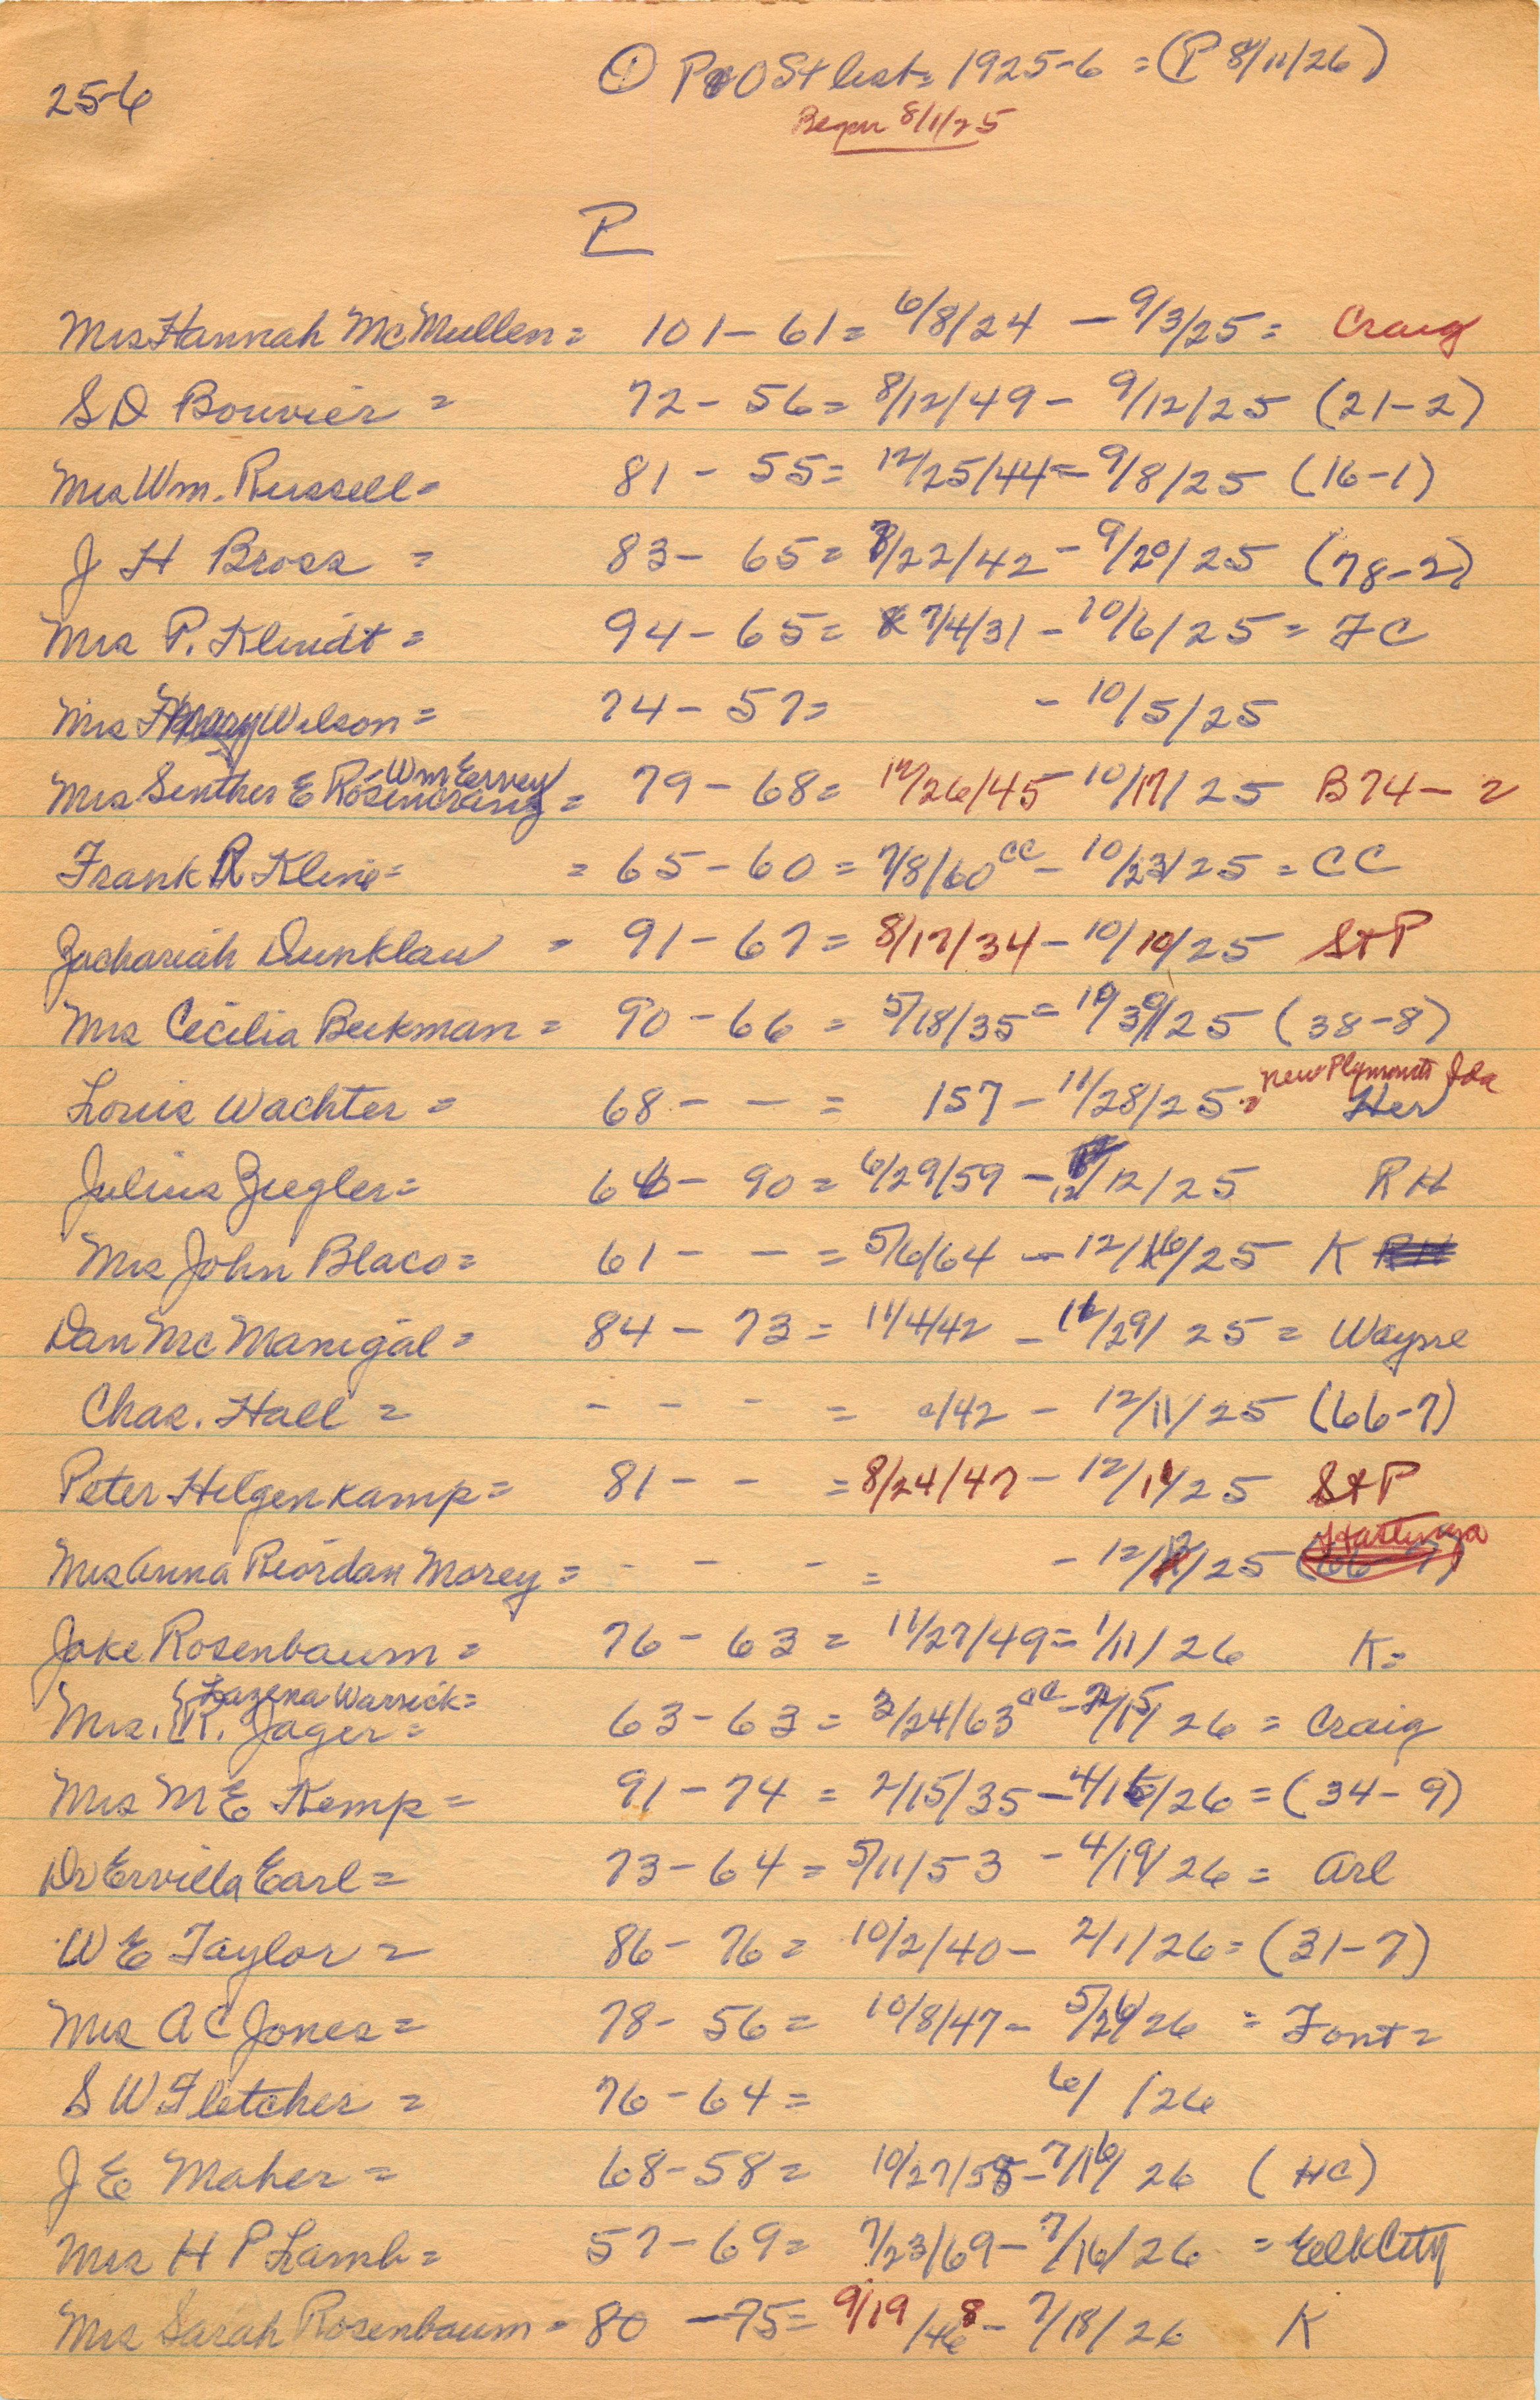 25-6
① P&O St list = 1925-6 = (P 8/11/26)
Began 8/1/25
P
Mrs Hannah McMullen = 101 - 61 = 6/8/24 - 9/3/25 = Craig
S D Bouvier = 72 - 56 = 8/12/49 - 9/12/25 (21-2)
Mrs Wm. Russell = 81 - 55 = 12/25/44 = 9/8/25 (16-1)
J H Bross = 83 - 65 = /22/42 - 9/20/25 (78-2)
Mrs P. Klindt = 94 - 65 = 7/4/31 - 10/6/25 = FC
Mrs Wilson = 74 - 57 = - 10/5/25
Wm Eervey
Mrs E = 79 - 68 = 12/26/45 10/17/25 B74 - 2
Frank R Kline = = 65 - 60 = 7/8/60 CC - 10/23/25 = CC
Zachariah Dunklau = 91 - 67 = 8/17/34 - 10/10/25 S+P
Mrs Cecilia Beckman = 90 - 66 = 5/18/35 = 10/ /25 (38-8)
New Plymouth Ida
Louis Wachter = 68 - - = 157 - 11/28/25 = Her
Julius Ziegler = 66 - 90 = 6/29/59 - 12/12/25 RH
Mrs John Blaco = 61 - - = 5/6/64 - 12/16/25 K
Dan McManigal = 84 - 73 = 11/4/42 - /29/25 = Wayne
Chas. Hall = - - - = c/42 - 12/11/25 (66-7)
Peter Hilgenkamp = 81 - - = 8/24/47 - 12/ /25 S+P
Hastings
Mrs Anna Riordan Morey = - - - = - 12/ /25 (66-7)
Jake Rosenbaum = 76 - 63 = 11/27/49 = 1/11/26 K =
Lazena Warrick =
Mrs. R. Jager = 63 - 63 = 3/24/63 CC - 2/15/26 = Craig
Mrs M E Kemp = 91 - 74 = 2/15/35 - 4/16/26 = (34-9)
Dr Ervilla Earl = 73 - 64 = 5/11/53 - 4/19/26 = Arl
W E Taylor = 86 - 76 = 10/2/40 - 2/1/26 = (31-7)
Mrs A C Jones = 78 - 56 = 10/8/47 - 5/26/26 = Font =
S W Fletcher = 76 - 64 = 6/ /26
J E Maher = 68 - 58 = 10/27/58 - 7/16/26 (HC)
Mrs H P Lamb = 57 - 69 = 7/23/69 - 7/16/26 = Elk City
Mrs Sarah Rosenbaum = 80 - 75 = 9/19/468 - 7/18/26 K